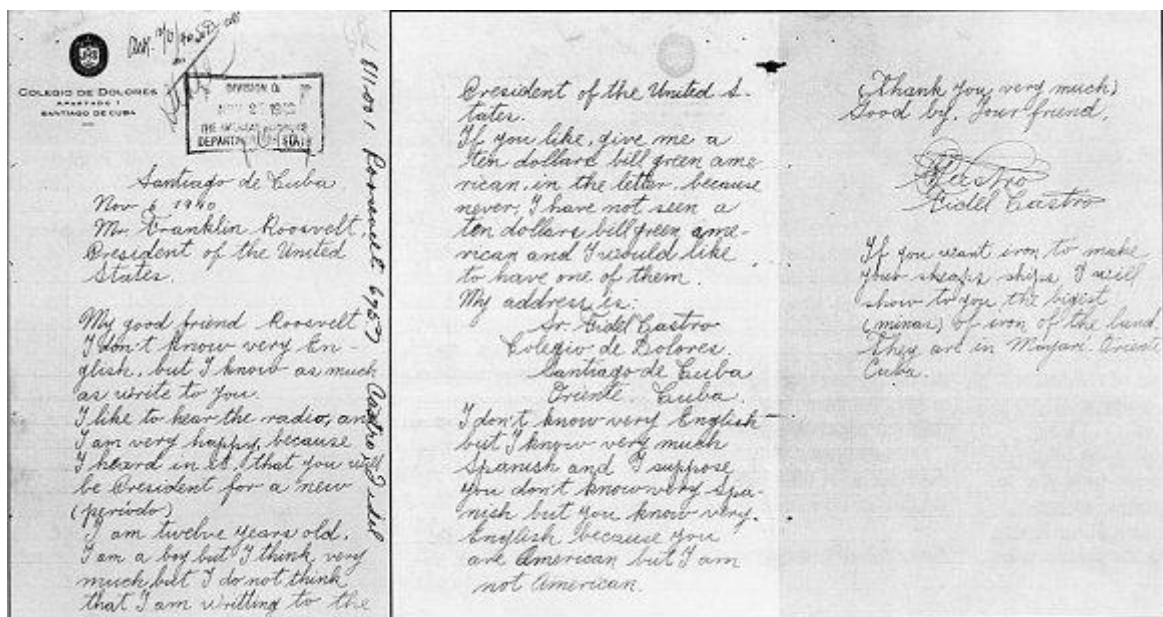 COLEGIO DE DOLORES
APARTADO 1
SANTIAGO DE CUBA
DIVISION OF
THE AMERICAN REPUBLICS
DEPARTMENT OF STATE
Santiago de Cuba.
Nov 6 1940
Mr. Franklin Roosvelt,
President of the United
States.
My good friend Roosvelt
I don't know very En-
glish, but I know as much
as write to you.
I like to hear the radio, and
I am very happy, because
I heard in it, that you will
be President for a new
(periodo)
I am twelve years old.
I am a boy but I think very
much but I do not think
that I am writting to the
811.001 Roosevelt 6957
Castro, Fidel
President of the United S-
tates.
If you like, give me a
ten dollars bill green ame-
rican, in the letter, because
never, I have not seen a
ten dollars bill green ame-
rican and I would like
to have one of them.
My address is:
Sr. Fidel Castro
Colegio de Dolores.
Santiago de Cuba
Oriente. Cuba.
I don't know very English
but I know very much
Spanish and I suppose
you don't know very Spa-
nish but you know very
English because you
are American but I am
not American.
(Thank you very much)
Good by. Your friend,
Castro
Fidel Castro
If you want iron to make
your sheaps ships I will
show to you the bigest
(minas) of iron of the land.
They are in Mayari. Oriente
Cuba.